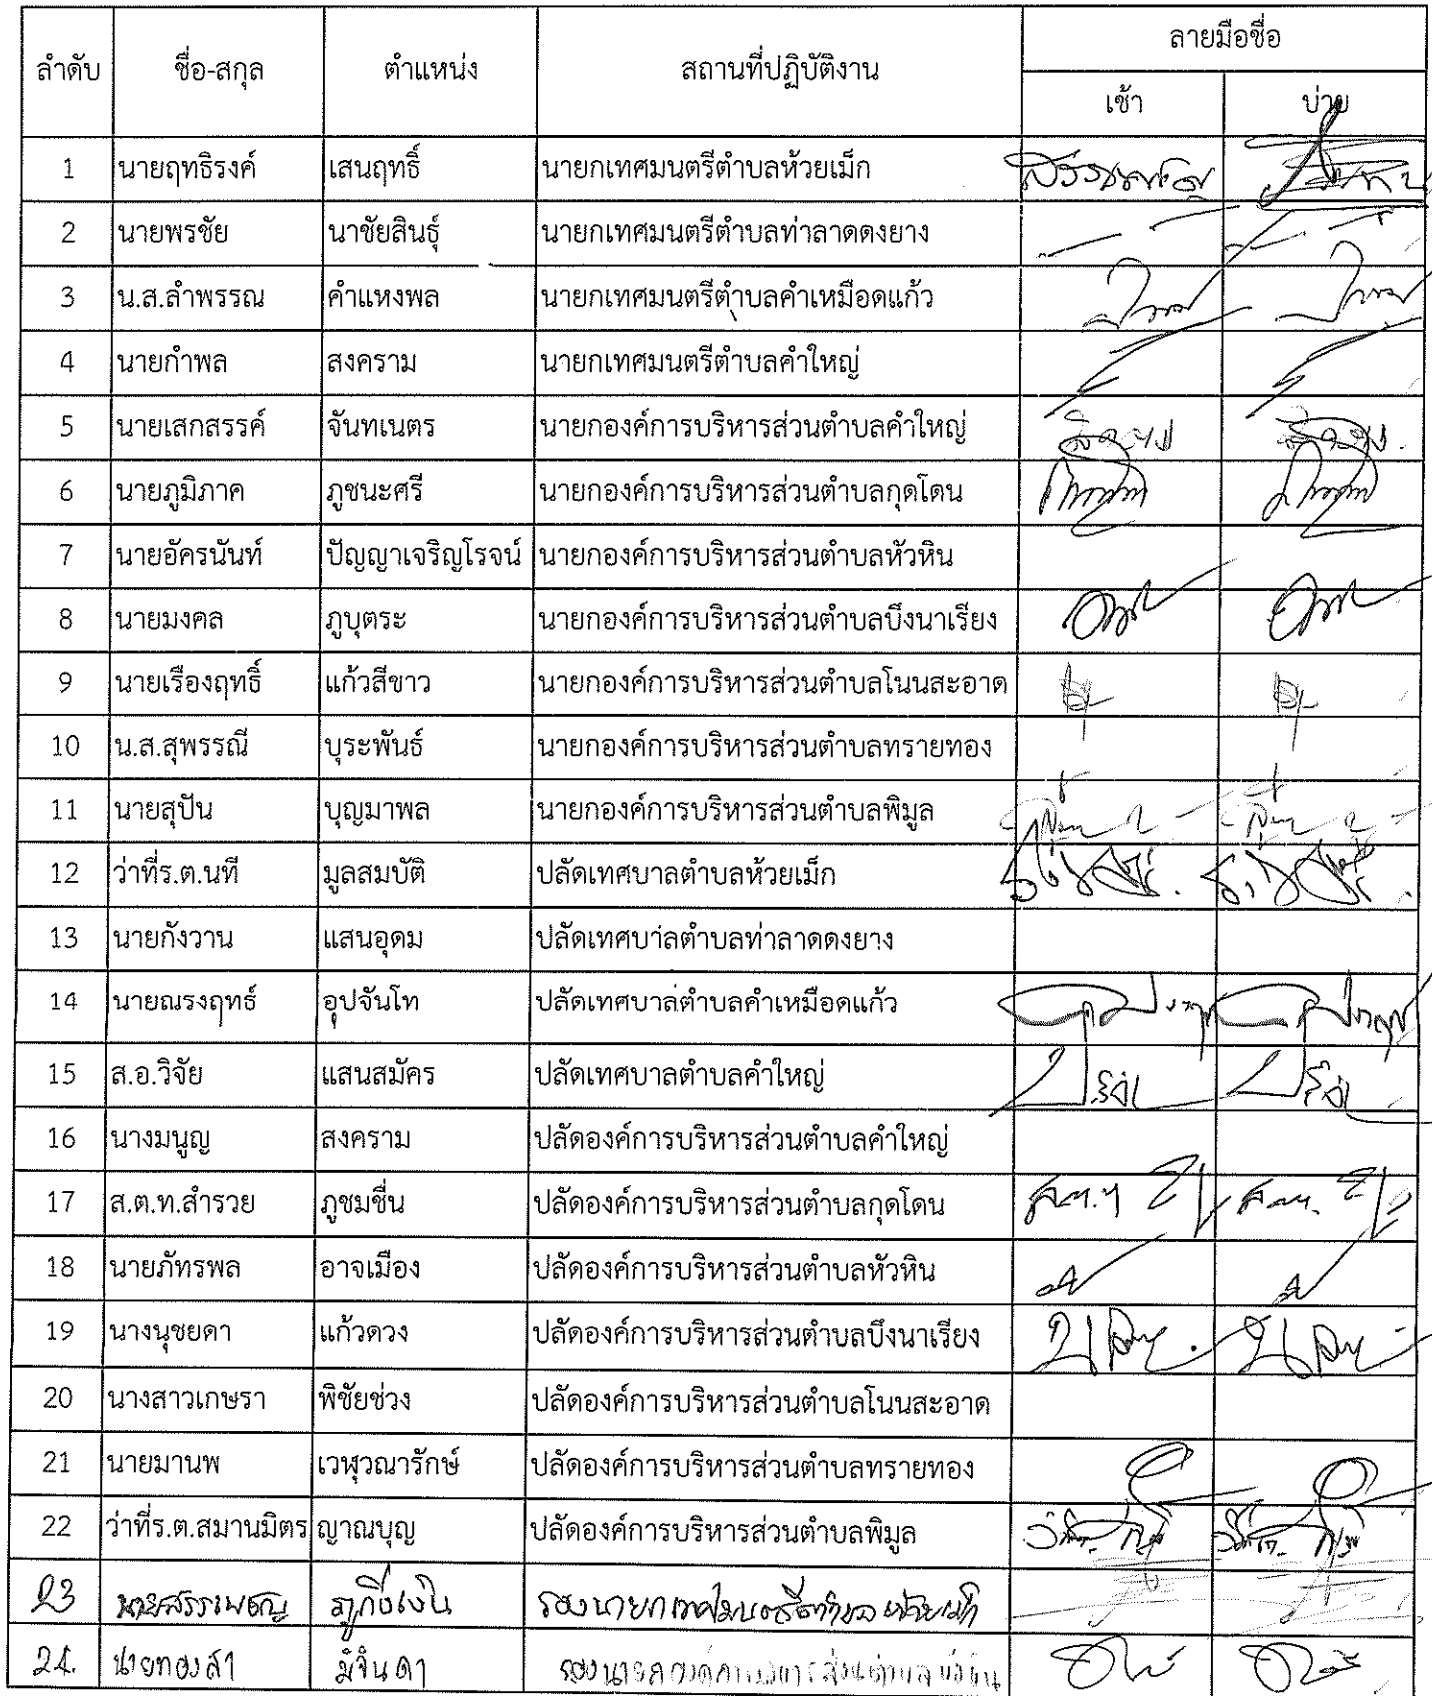 ลำดับ ชื่อ-สกุล ตำแหน่ง สถานที่ปฏิบัติงาน ลายมือชื่อ
เช้า บ่าย
1 นายฤทธิรงค์ เสนฤทธิ์ นายกเทศมนตรีตำบลห้วยเม็ก
2 นายพรชัย นาชัยสินธุ์ นายกเทศมนตรีตำบลท่าลาดดงยาง
3 น.ส.ลำพรรณ คำแหงพล นายกเทศมนตรีตำบลคำเหมือดแก้ว
4 นายกำพล สงคราม นายกเทศมนตรีตำบลคำใหญ่
5 นายเสกสรรค์ จันทเนตร นายกองค์การบริหารส่วนตำบลคำใหญ่
6 นายภูมิภาค ภูชนะศรี นายกองค์การบริหารส่วนตำบลกุดโดน
7 นายอัครนันท์ ปัญญาเจริญโรจน์ นายกองค์การบริหารส่วนตำบลหัวหิน
8 นายมงคล ภูบุตระ นายกองค์การบริหารส่วนตำบลบึงนาเรียง
9 นายเรืองฤทธิ์ แก้วสีขาว นายกองค์การบริหารส่วนตำบลโนนสะอาด
10 น.ส.สุพรรณี บุระพันธ์ นายกองค์การบริหารส่วนตำบลทรายทอง
11 นายสุปัน บุญมาพล นายกองค์การบริหารส่วนตำบลพิมูล
12 ว่าที่ร.ต.นที มูลสมบัติ ปลัดเทศบาลตำบลห้วยเม็ก
13 นายกังวาน แสนอุดม ปลัดเทศบาลตำบลท่าลาดดงยาง
14 นายณรงฤทธ์ อุปจันโท ปลัดเทศบาลตำบลคำเหมือดแก้ว
15 ส.อ.วิจัย แสนสมัคร ปลัดเทศบาลตำบลคำใหญ่
16 นางมนูญ สงคราม ปลัดองค์การบริหารส่วนตำบลคำใหญ่
17 ส.ต.ท.สำรวย ภูชมชื่น ปลัดองค์การบริหารส่วนตำบลกุดโดน
18 นายภัทรพล อาจเมือง ปลัดองค์การบริหารส่วนตำบลหัวหิน
19 นางนุชยดา แก้วดวง ปลัดองค์การบริหารส่วนตำบลบึงนาเรียง
20 นางสาวเกษรา พิชัยช่วง ปลัดองค์การบริหารส่วนตำบลโนนสะอาด
21 นายมานพ เวฬุวณารักษ์ ปลัดองค์การบริหารส่วนตำบลทรายทอง
22 ว่าที่ร.ต.สมานมิตร ญาณบุญ ปลัดองค์การบริหารส่วนตำบลพิมูล
23 นายสรรเพชญ ภูกิ่งเงิน รองนายกเทศมนตรีตำบลห้วยเม็ก
24. นายทองสา มีจินดา รองนายกองค์การบริหารส่วนตำบลหัวหิน